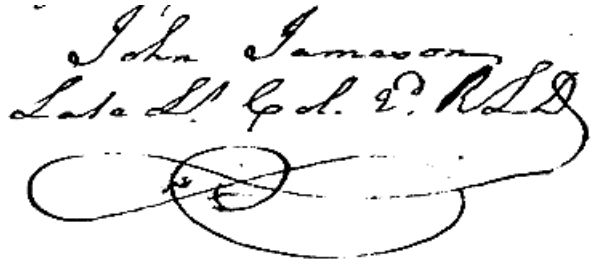 John Jameson
Late Lt. Col. Vᵃ. R L D